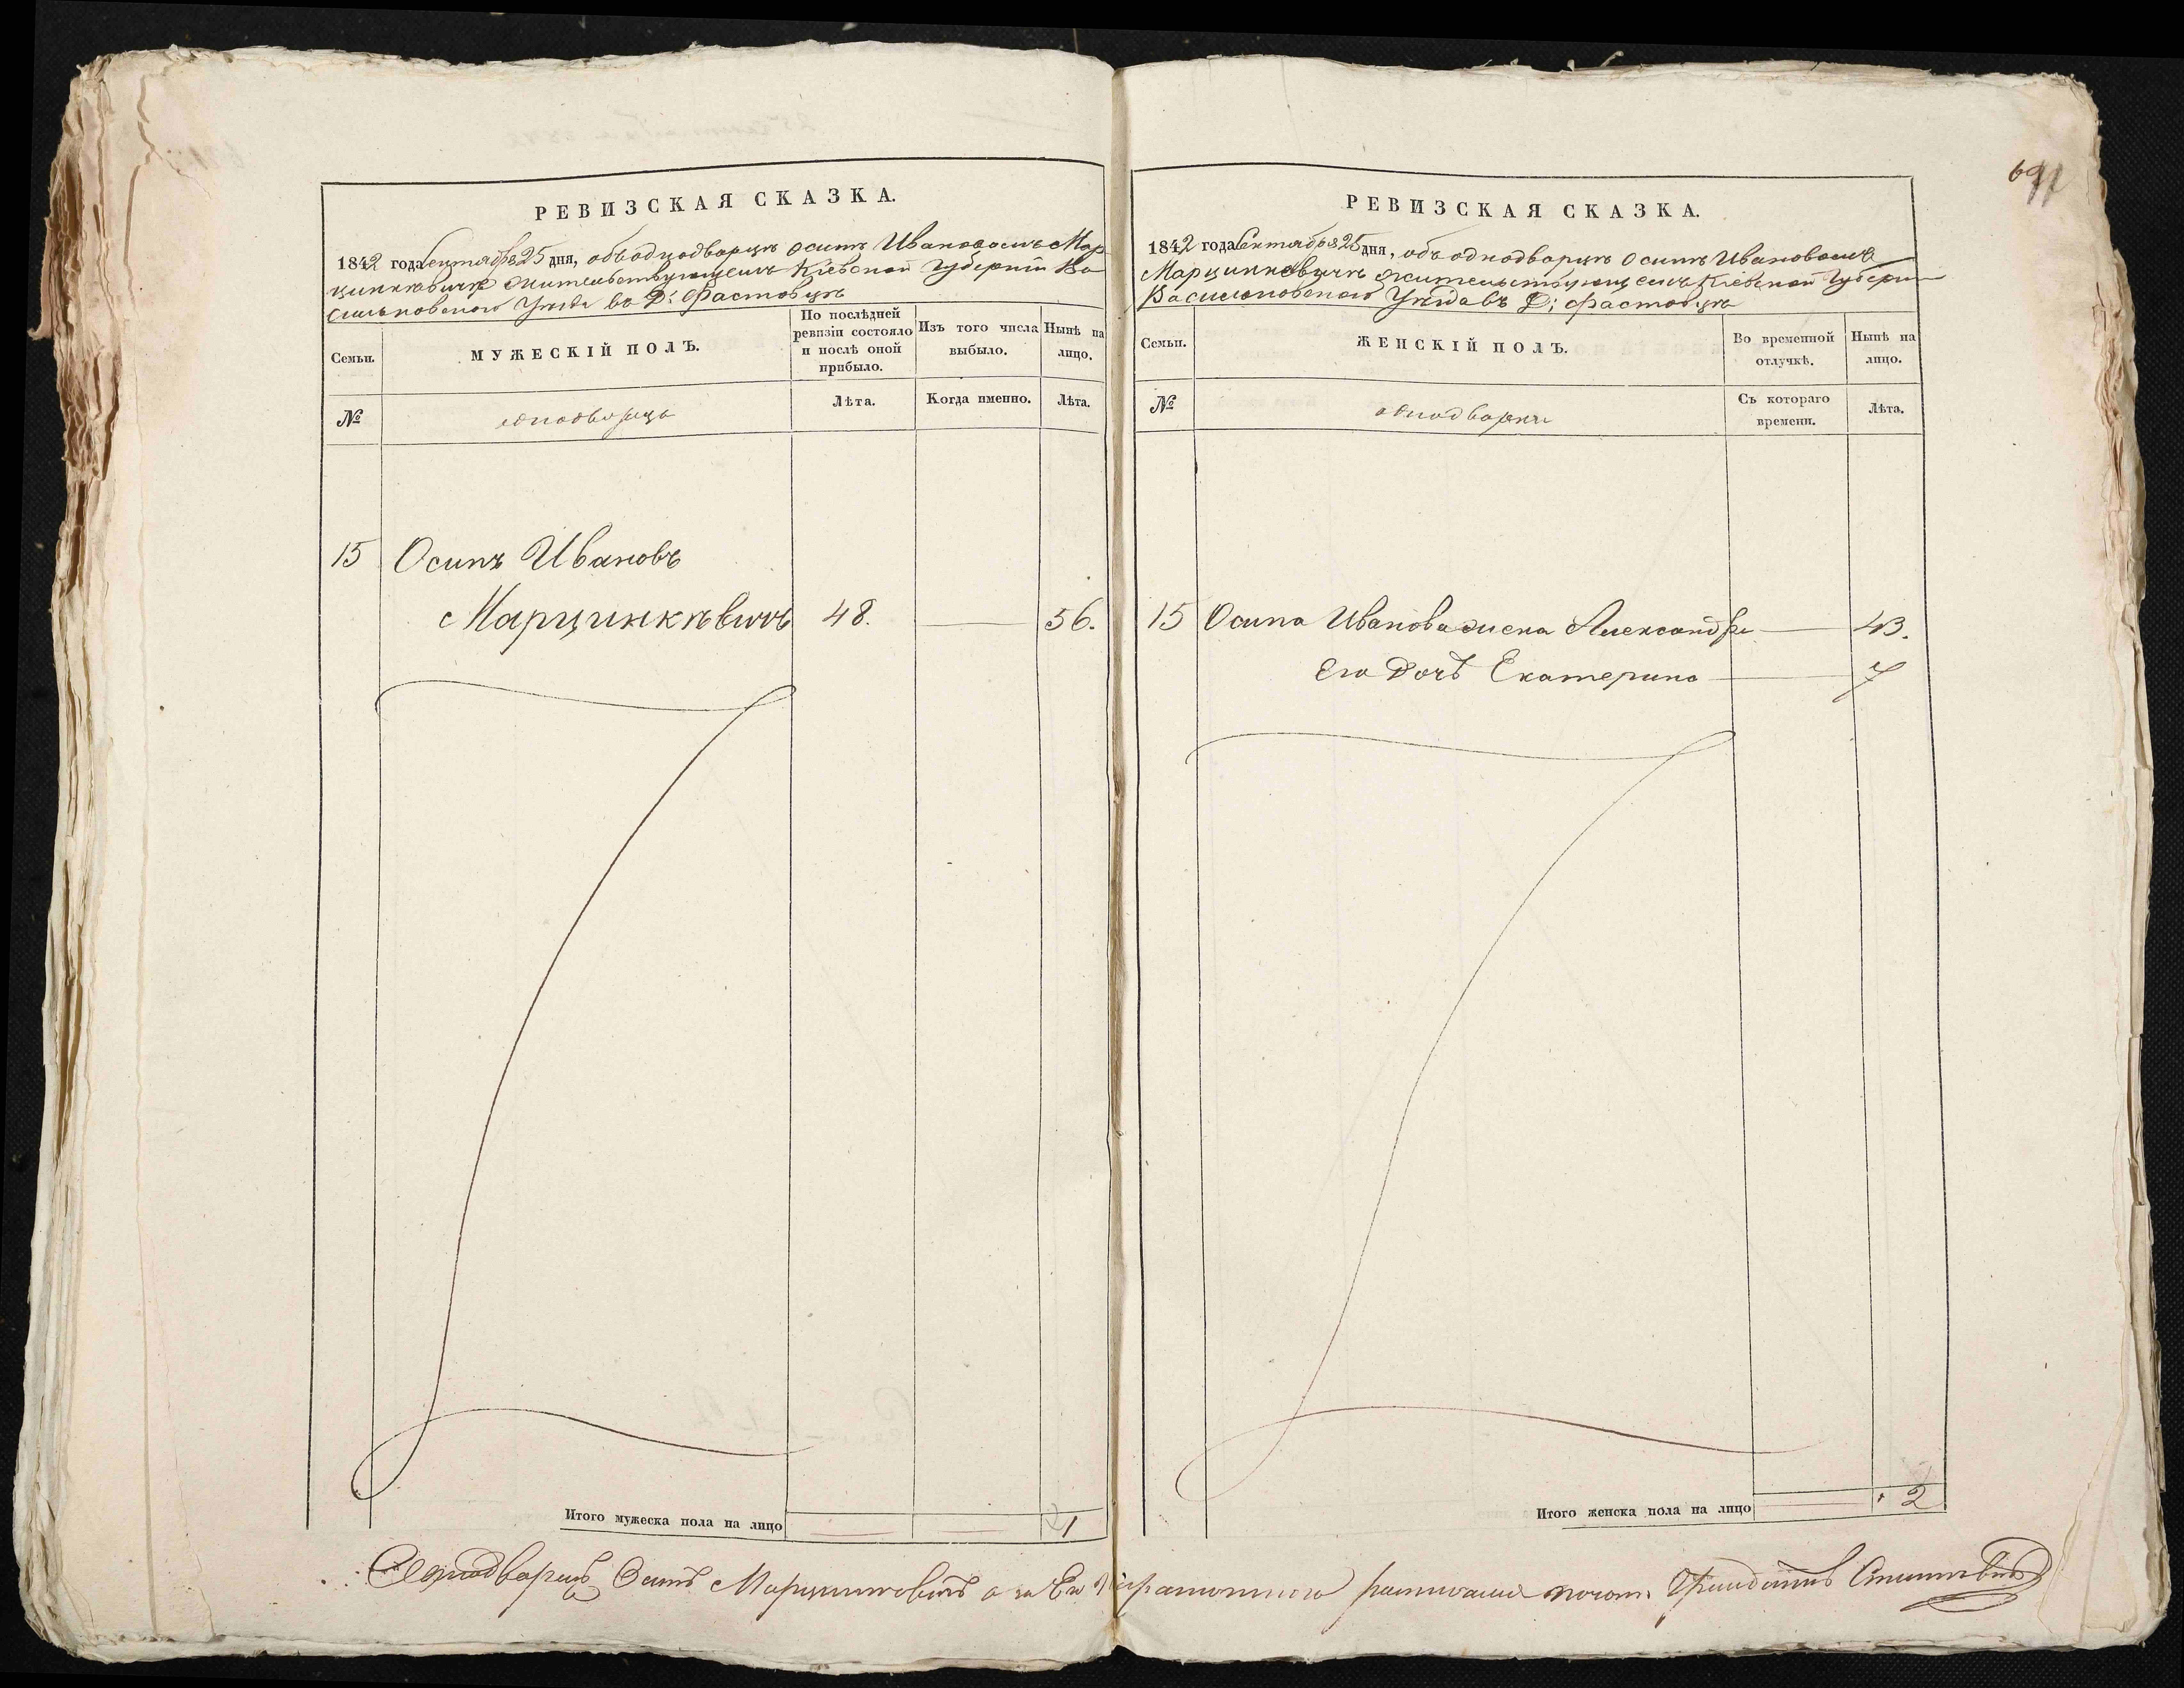 РЕВИЗСКАЯ СКАЗКА.
1842 года Сентября 25 дня, объ однодворцѣ Осипѣ Ивановомъ Мар
цинкѣвичѣ жительствующемъ Кіевской Губерніи Ва
сильковскаго Уѣзда въ Д: Фастовцѣ
Семьи.
МУЖЕСКІЙ ПОЛЪ.
По послѣдней
ревизіи состояло
и послѣ оной
прибыло.
Изъ того числа
выбыло.
Нынѣ на
лицо.
№
однодворца
Лѣта.
Когда именно.
Лѣта.
15 Осипъ Ивановъ
Марцинкѣвичъ 48. 56.
Итого мужеска пола на лицо 1
РЕВИЗСКАЯ СКАЗКА.
1842 года Сентября 25 дня, объ однодворцѣ Осипѣ Ивановомъ
Марцинкѣвичѣ жительствующемъ Кіевской Губерни
Васильковскаго Уѣзда въ Д: Фастовцѣ
Семьи.
ЖЕНСКІЙ ПОЛЪ.
Во временной
отлучкѣ.
Нынѣ на
лицо.
№
однодворки
Съ котораго
времени.
Лѣта.
15 Осипа Иванова жена Александра 43.
Его Дочь Екатерина 7
Итого женска пола на лицо 2
Однодворецъ Осипъ Марцинковичъ а за Его неграмотного росписался